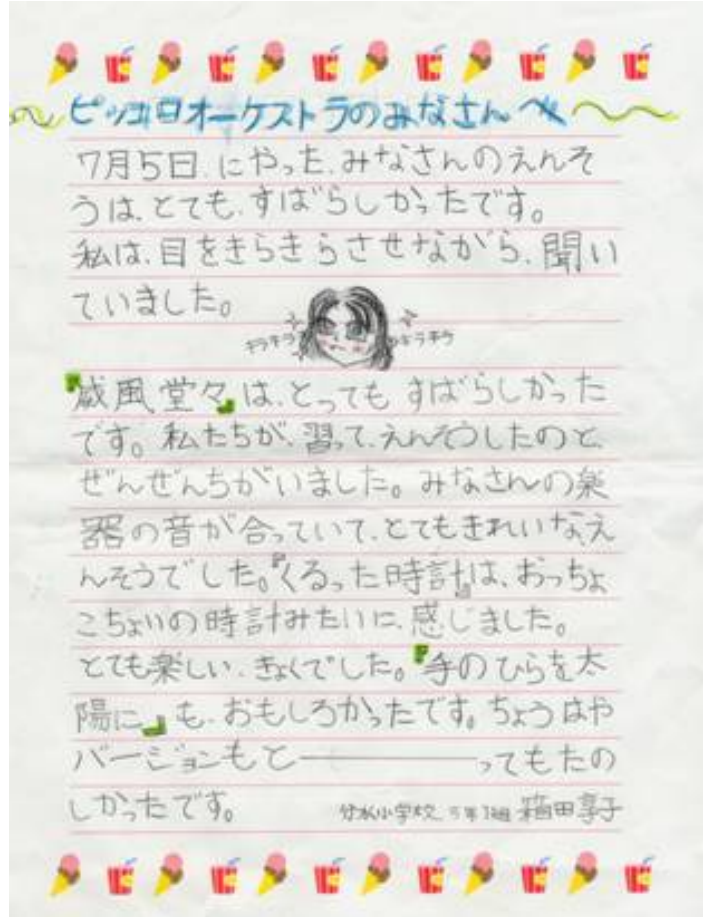 ピッコロオーケストラのみなさんへ
7月5日、にやった、みなさんのえんそ
うは、とても、すばらしかったです。
私は、目をきらきらさせながら、聞い
ていました。
キラキラ キラキラ
『威風堂々』は、とっても すばらしかった
です。私たちが、習って、えんそうしたのと、
ぜんぜんちがいました。みなさんの楽
器の音が合っていて、とてもきれいな、え
んそうでした。『くるった時計』は、おっちょ
こちょいの時計みたいに、感じました。
とても楽しい、きょくでした。『手のひらを太
陽に』も、おもしろかったです。ちょうはや
バージョンもと――――ってもたの
しかったです。 分水小学校 5年1組 田享子